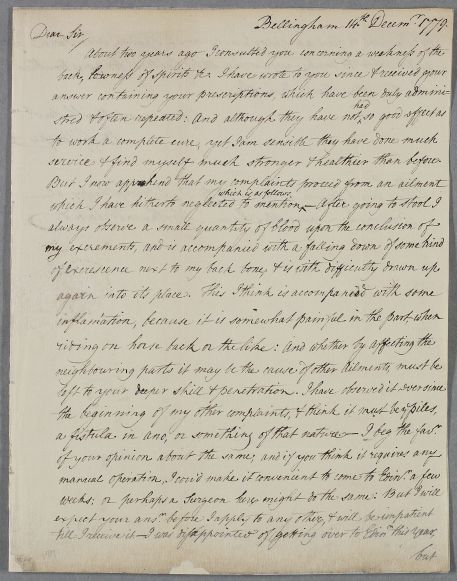 Bellingham 14th Decemr 1779.
Dear Sir,
About two years ago I consulted you concerning a weakness of the
back, lowness of Spirits &c I have wrote to you since & received your
answer containing your prescriptions, which have been duly adminis-
tred & often repeated: And although they have not
had
so good effect as
to work a complete cure, yet I am sensible they have done much
service & find myself much stronger & healthier than before
But I now apprehend that my complaints proceed from an ailment
which is as follows,
which I have hitherto neglected to mention ^ — After going to stool I
always observe a small quantity of blood upon the conclusion of
my excrements, and is accompanied with a falling down of some kind
of Excrescence next to my back bone, & is with difficulty drawn up
again into its place. This I think is accompanied with some
inflamation, because it is somewhat painful in the part when
riding on horse back or the like: And whether by affecting the
neighbouring parts it may be the cause of other Ailments, must be
left to your deeper skill & penetration. I have observed it ever since
the beginning of my other complaints, & think it must be ye piles,
a fistula in ano, or something of that nature — I beg the favr.
of your opinion about the same, and if you think it requires any
manual operation, I cou'd make it convenient to come to Edinr. a few
weeks; or perhaps a Surgeon here might do the same: But I will
expect your ansr. before I apply to any other, & will be impatient
till I receive it — I was disappointed of getting over to Edinr. this year,
but